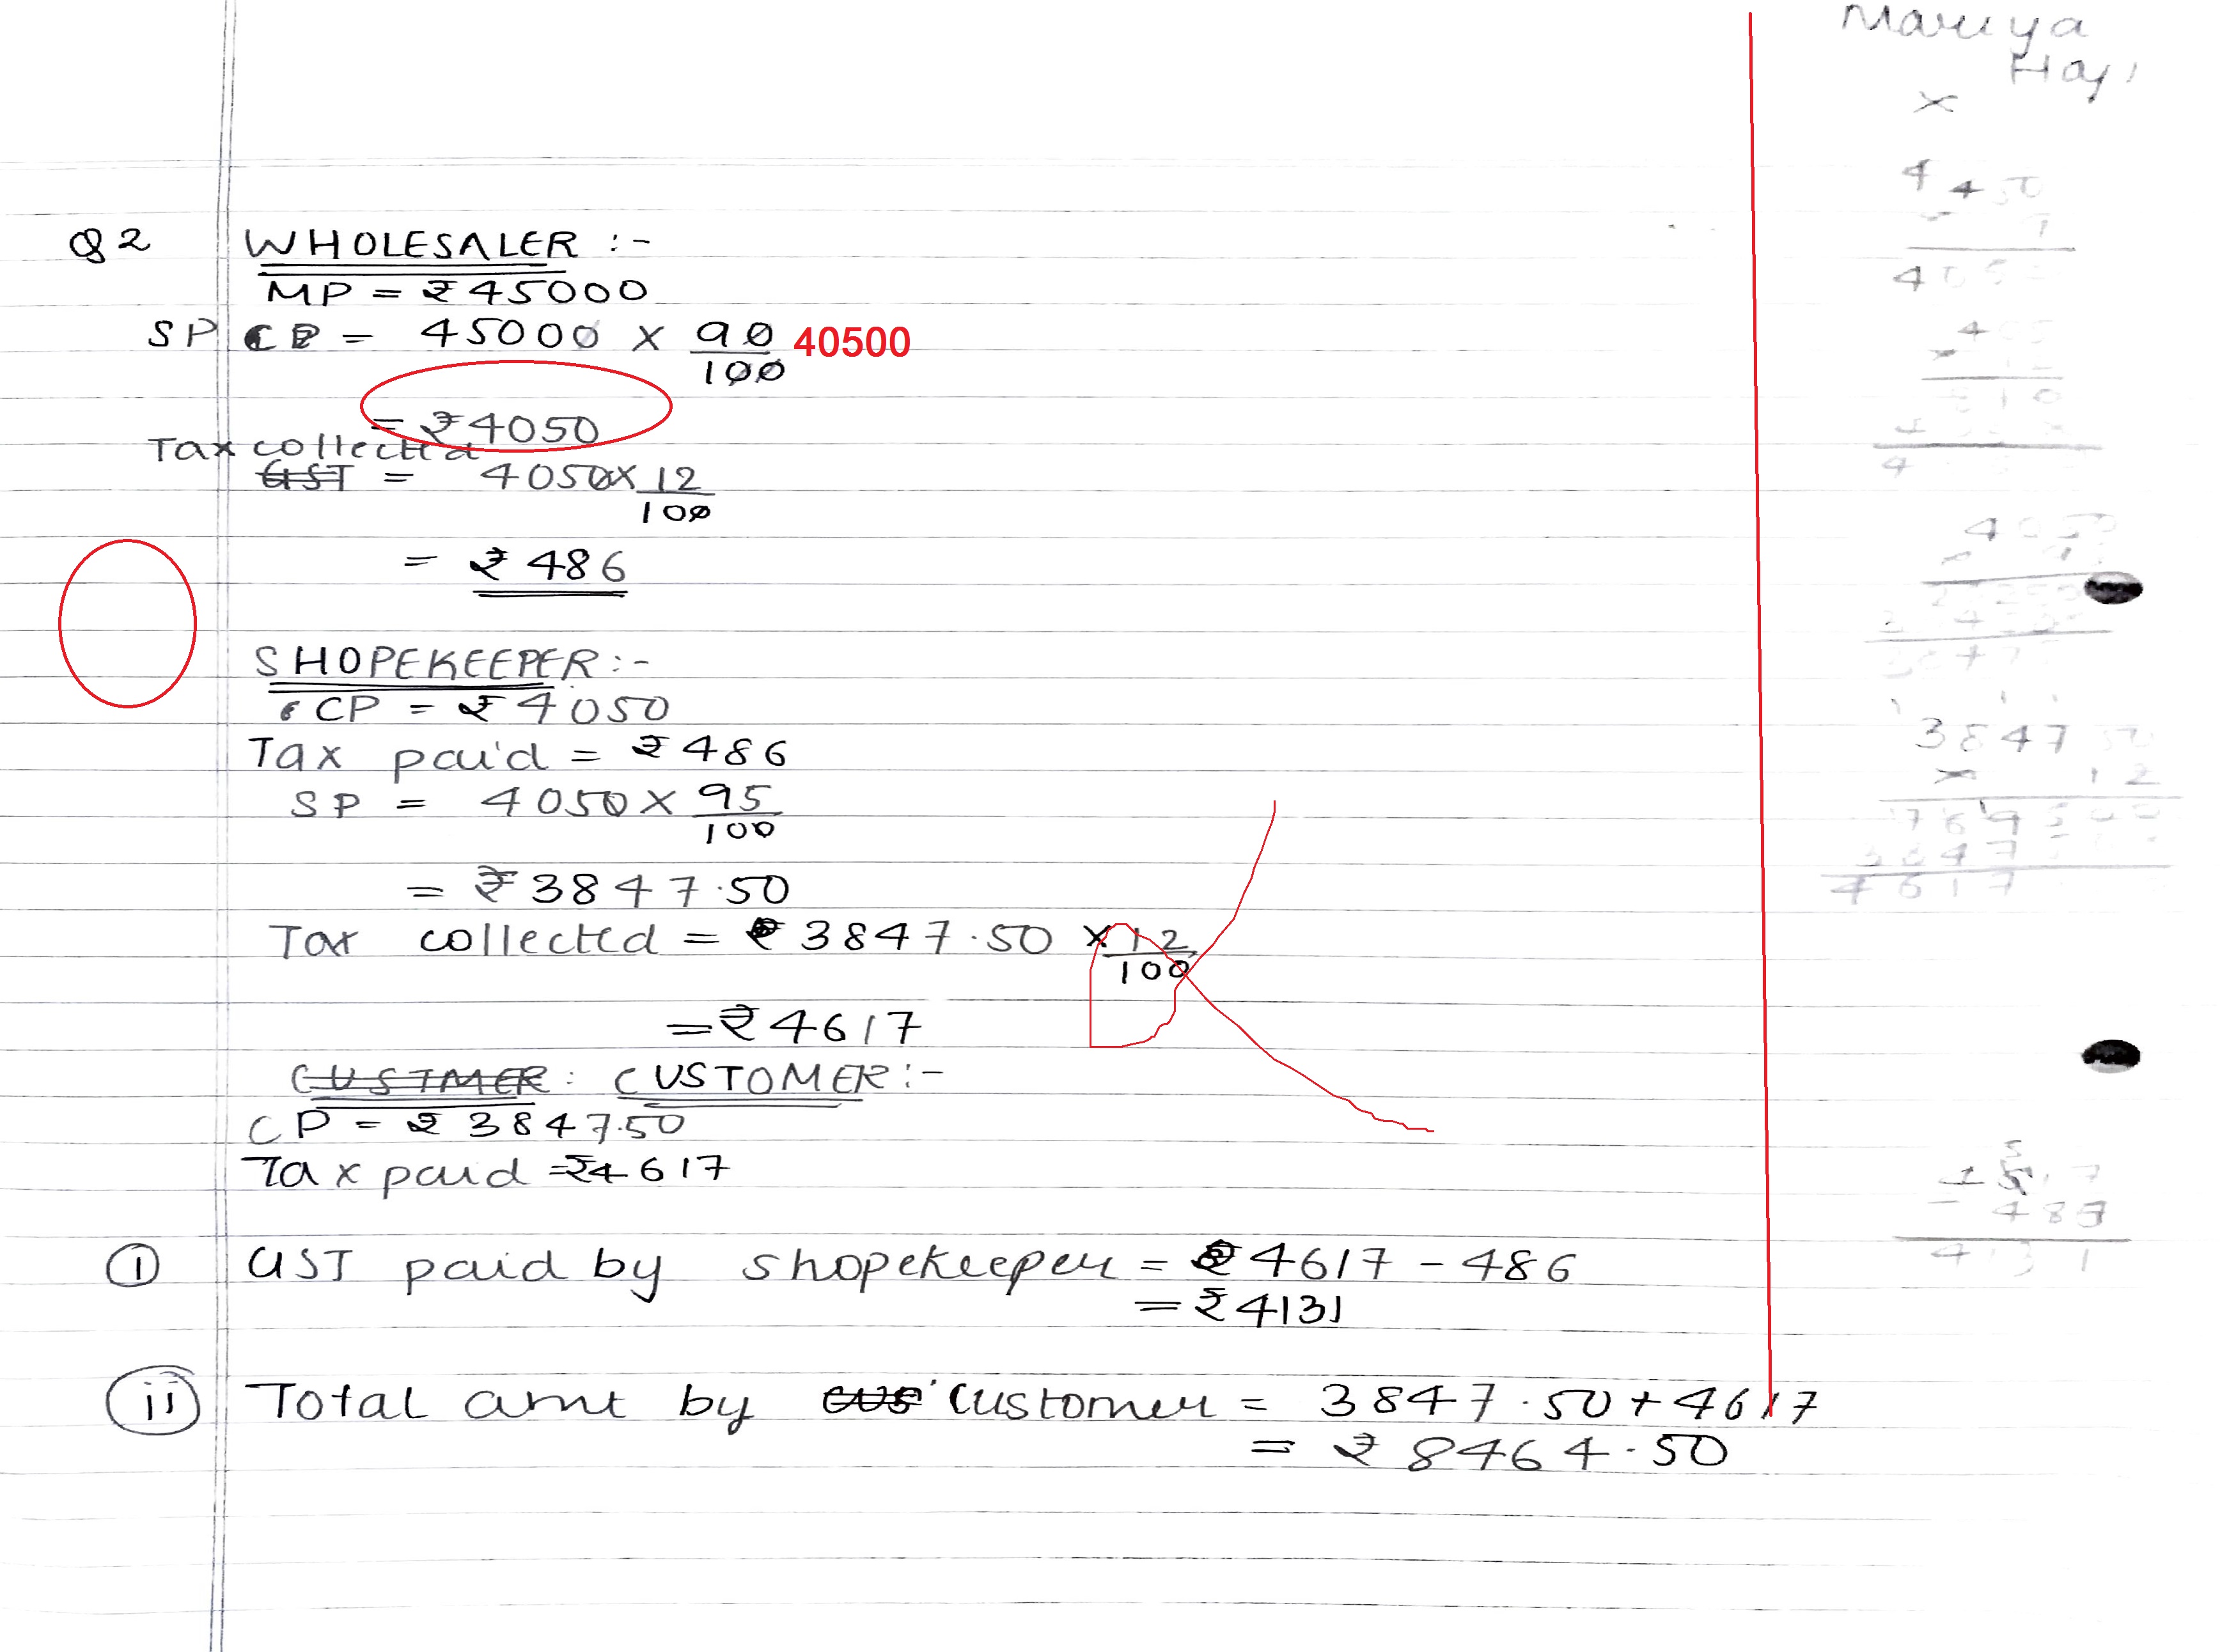 Mariya
Haji
Q2 WHOLESALER :-
MP = ₹45000
SP CP = 45000 × 90/100 40500
= ₹4050
Tax collected
GST = 4050 × 12/100
= ₹486
SHOPEKEEPER :-
CP = ₹4050
Tax paid = ₹486
SP = 4050 × 95/100
= ₹3847.50
Tax collected = ₹3847.50 × 12/100
= ₹4617
CUSTMER : CUSTOMER :-
CP = ₹3847.50
Tax paid = ₹4617
(i) GST paid by shopekeeper = ₹4617 - 486
= ₹4131
(ii) Total amt by cus customer = 3847.50 + 4617
= ₹8464.50
3847 50
× 12
4617